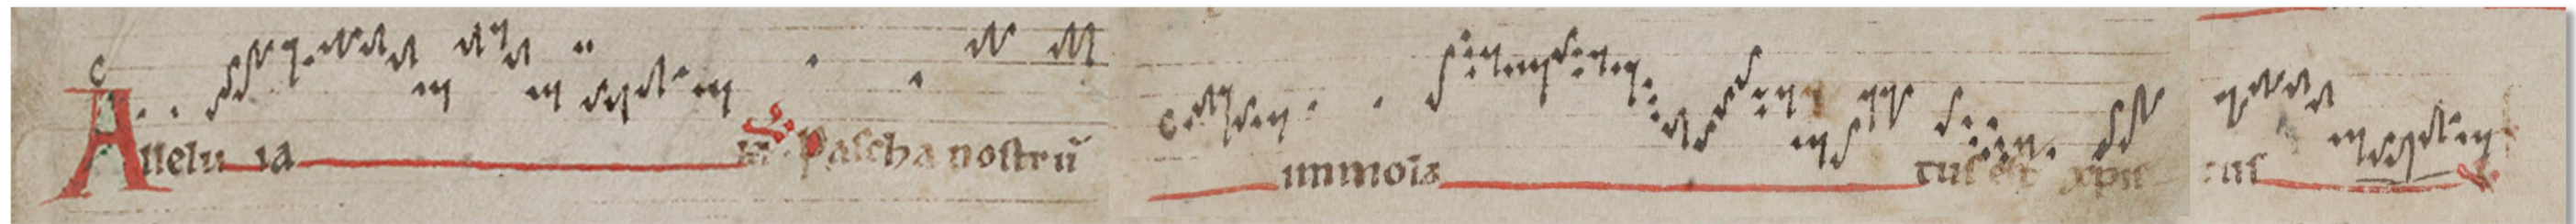 Allelu ia ii Pascha nostrū immola tus est xpc tus